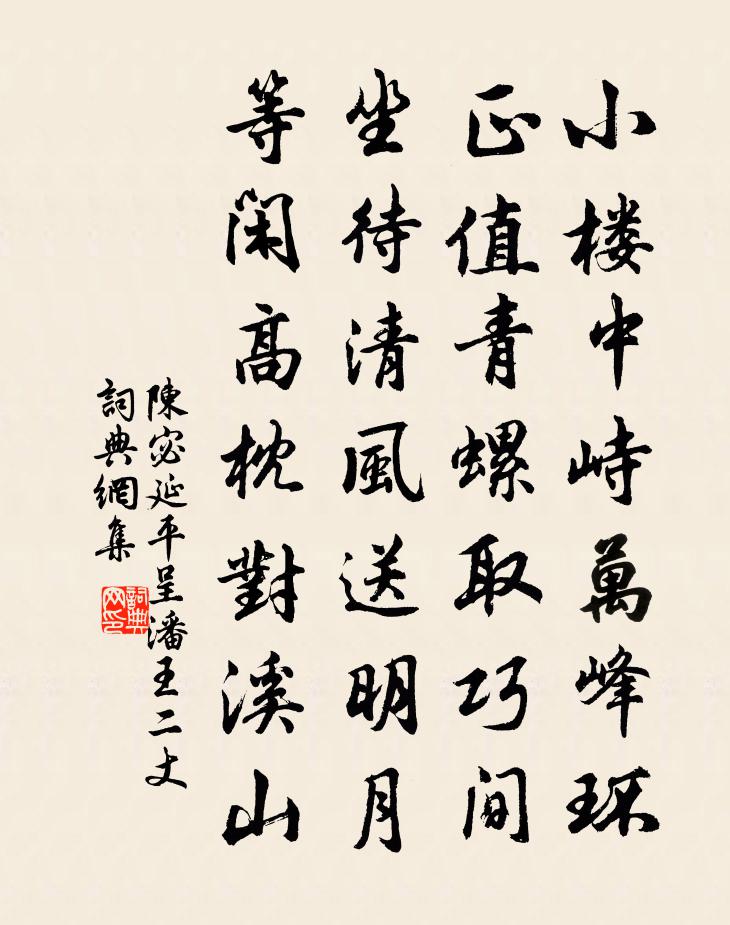 小樓中峙萬峰環
正值青螺取巧間
坐待清風送明月
等閑高枕對溪山
陳宓延平呈潘王二丈
詞典網集
詞典網印